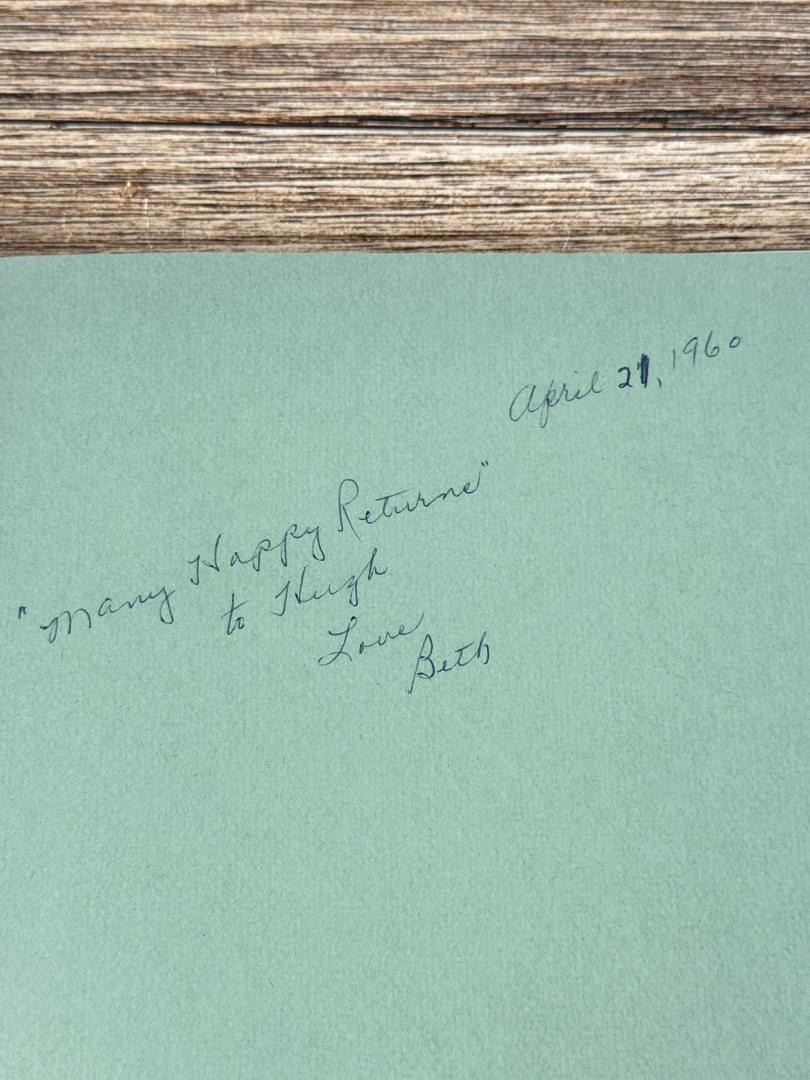 April 21, 1960
"Many Happy Returns"
to Hugh
Love
Beth